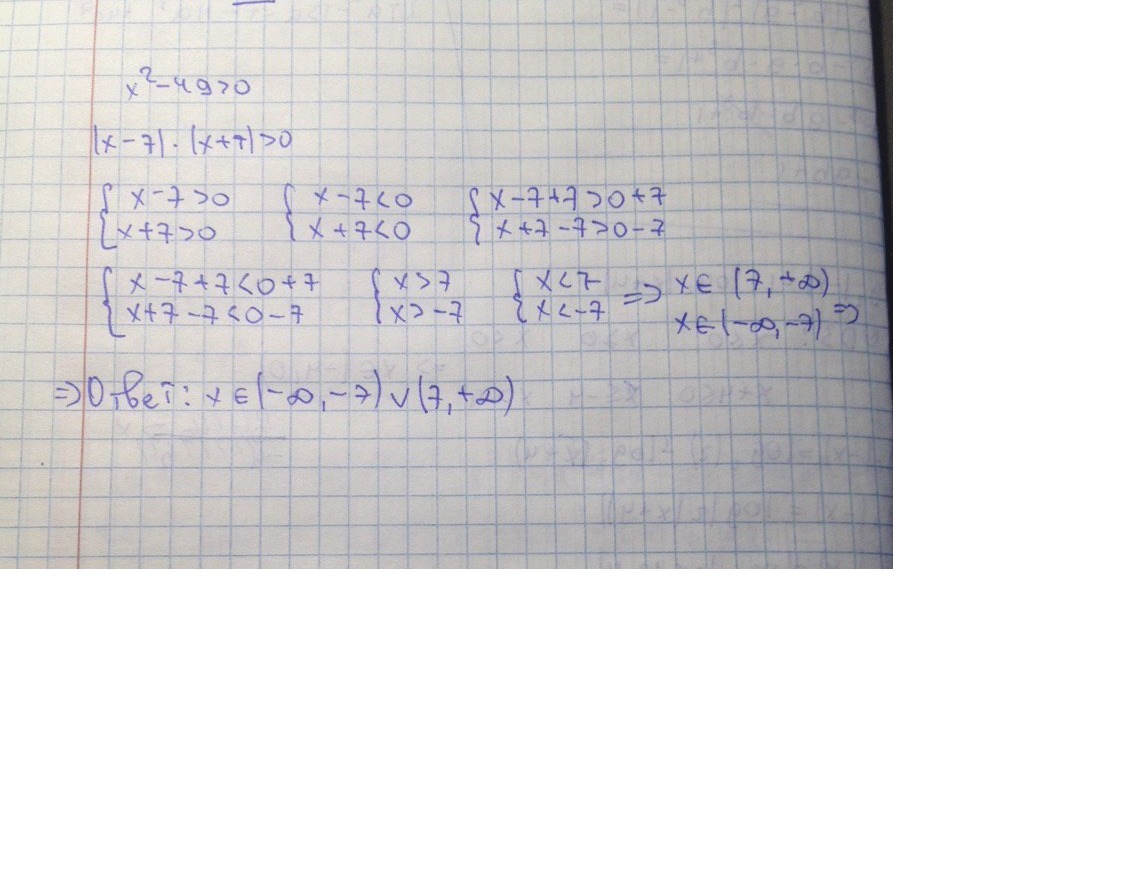 x²-49>0
(x-7)·(x+7)>0
{ x-7>0 { x-7<0 { x-7+7>0+7
{ x+7>0 { x+7<0 { x+7-7>0-7
{ x-7+7<0+7 { x>7 { x<7 => x∈ (7,+∞)
{ x+7-7<0-7 { x>-7 { x<-7 x∈(-∞,-7) =>
=> Ответ: x∈(-∞,-7)∨(7,+∞)